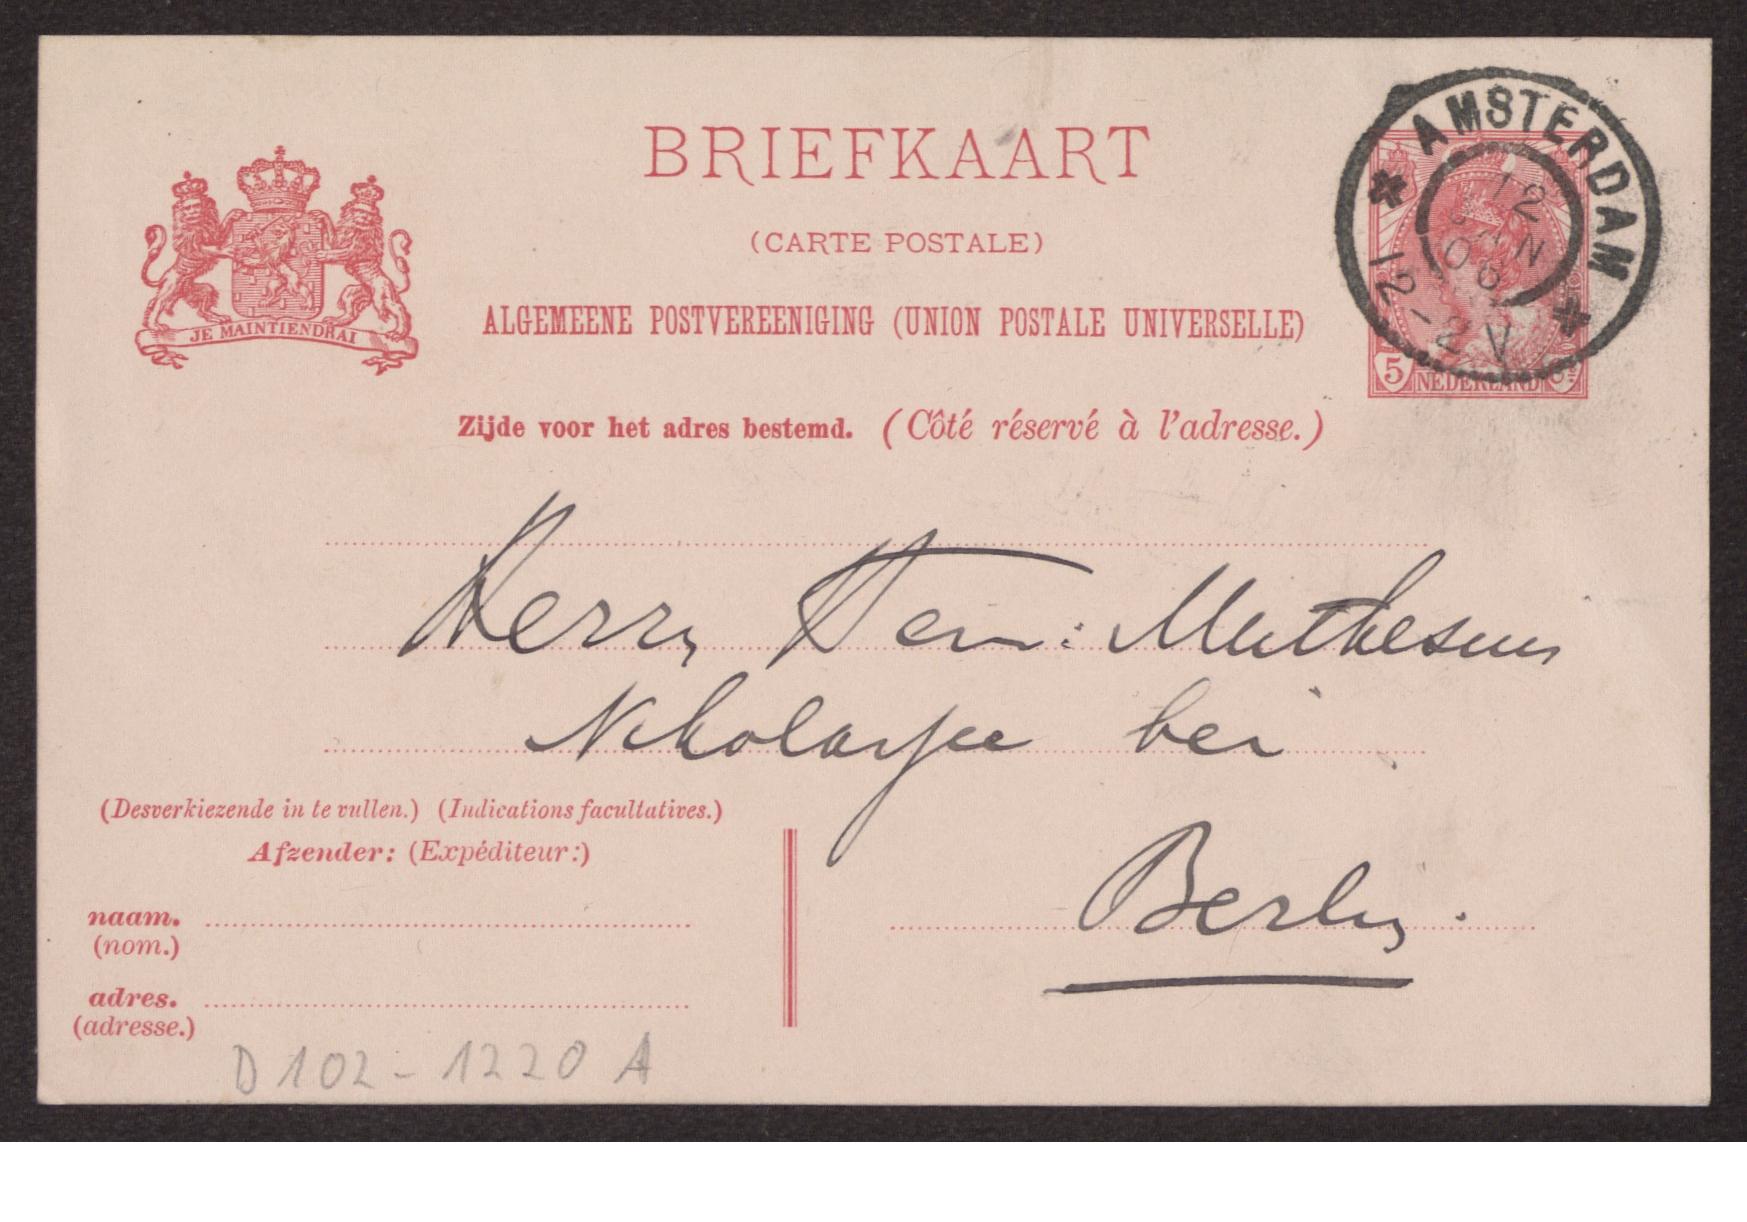 BRIEFKAART
(CARTE POSTALE)
ALGEMEENE POSTVEREENIGING (UNION POSTALE UNIVERSELLE)
Zijde voor het adres bestemd. (Côté réservé à l'adresse.)
JE MAINTIENDRAI
AMSTERDAM
12
06
12-2V
5 NEDERLAND
Herrn Muthesius
Nikolassee bei
Berlin.
(Desverkiezende in te vullen.) (Indications facultatives.)
Afzender: (Expéditeur:)
naam.
(nom.)
adres.
(adresse.)
D102-1220 A